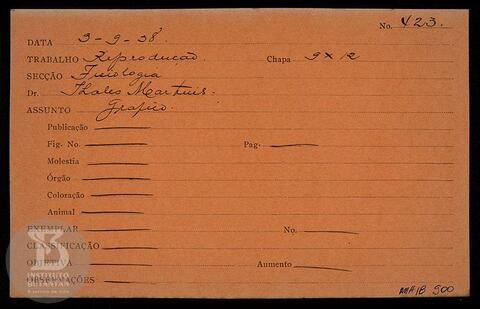 No. 423.
DATA 3-9-38
TRABALHO Reprodução Chapa 9x12
SECÇÃO Fisiologia
Dr. Thales Martins.
ASSUNTO Grafico.
Publicação
Fig. No. Pag.
Molestia
Órgão
Coloração
Animal
EXEMPLAR No.
CLASSIFICAÇÃO
OBJETIVA Aumento
OBSERVAÇÕES
INSTITUTO
BUTANTAN
A serviço da vida
900